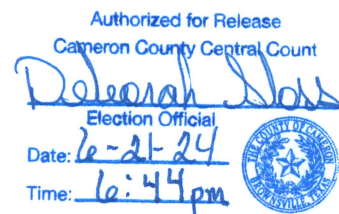 Authorized for Release
Cameron County Central Count
Deborah
Election Official
Date: 6-21-24
Time: 6:44pm
THE COUNTY OF CAMERON
BROWNSVILLE, TEXAS